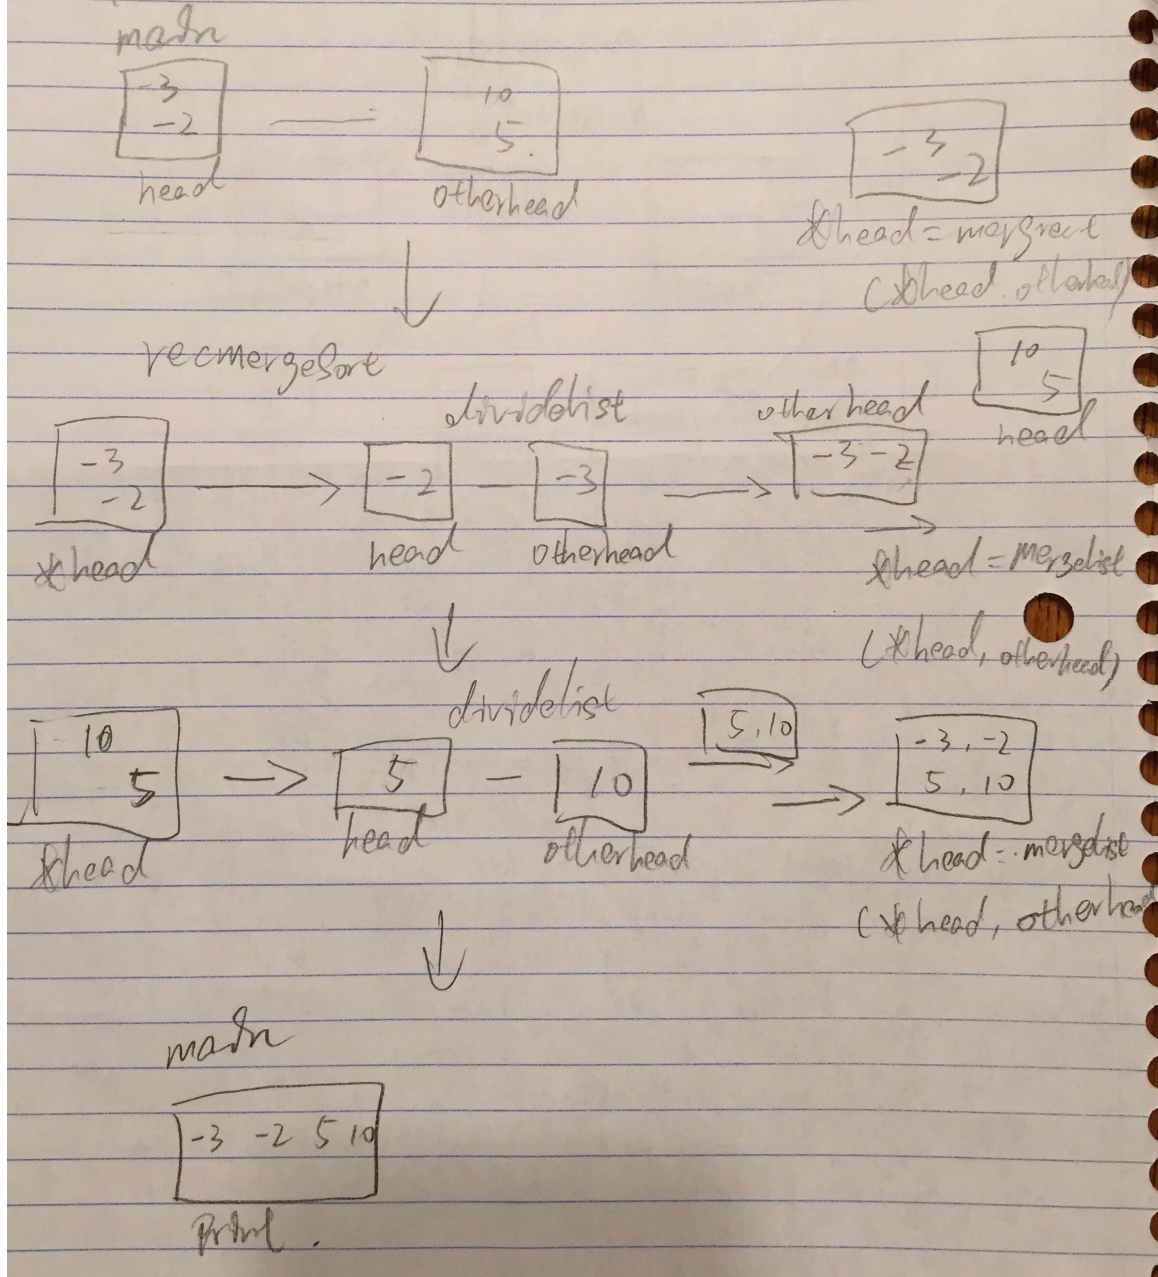 main
-3
-2
head
10
5
otherhead
-3
-2
*head = mergrect
(*head, otherhead)
recmergeSort
-3
-2
*head
dividelist
-2
head
-3
otherhead
otherhead
-3 -2
10
5
head
*head = mergelist
(*head, otherhead)
dividelist
10
5
*head
5
head
10
otherhead
5, 10
-3, -2
5, 10
*head = mergelist
(*head, otherhead
main
-3 -2 5 10
Print.